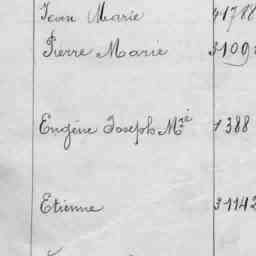 Jean Marie 41788
Pierre Marie 3109
Eugène Joseph Mié 1388
Etienne 31142